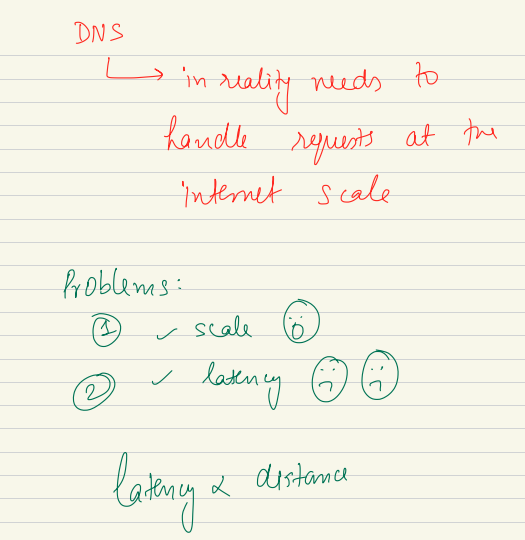 DNS
→ in reality needs to
handle requests at the
internet scale
Problems:
① ✓ scale
② ✓ latency
latency ∝ distance